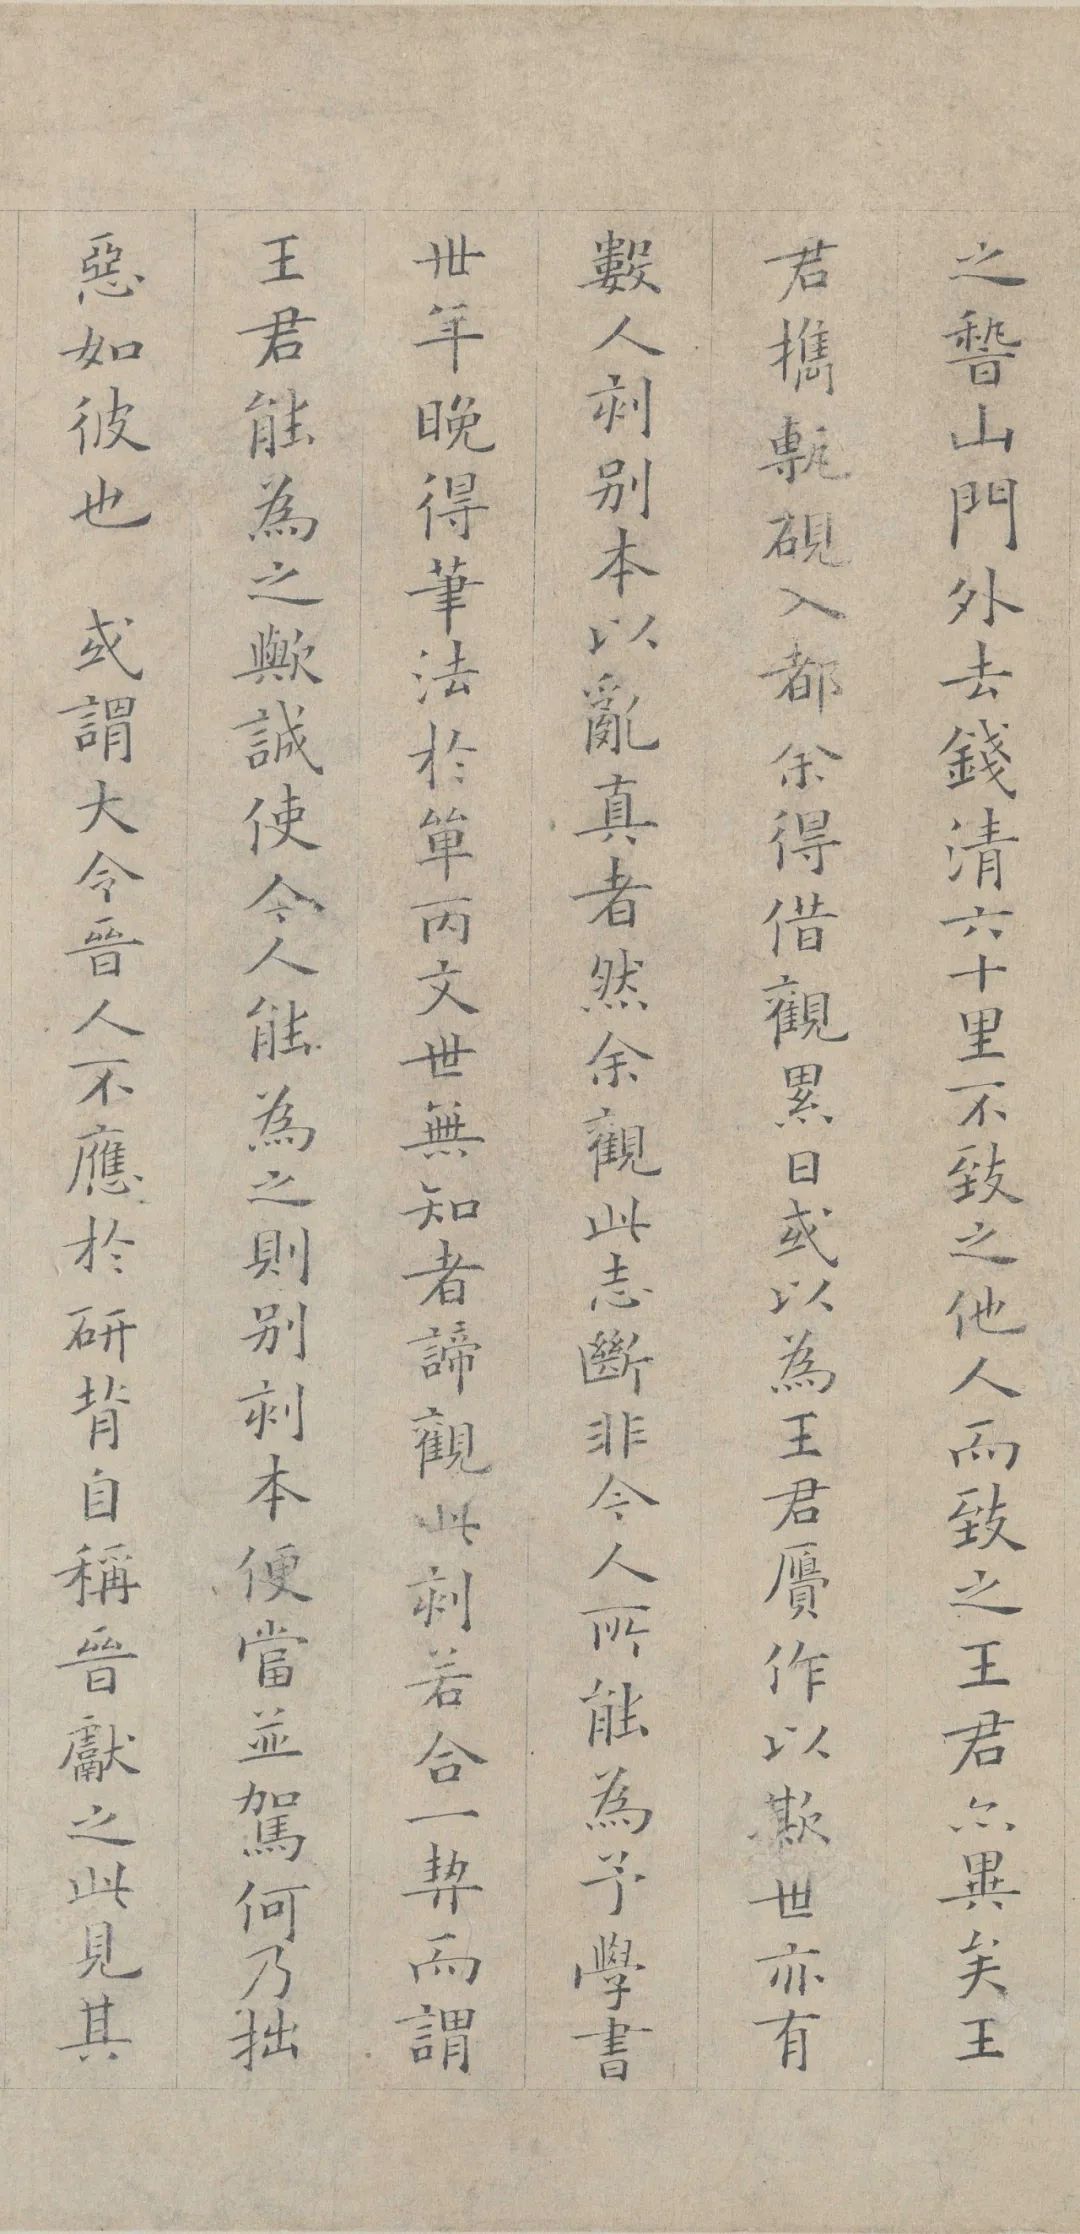 之稽山門外去錢清六十里不致之他人而致之王君亦異矣王
君攜甎硯入都余得借觀累日或以為王君贗作以欺世亦有
數人刻別本以亂真者然余觀此志斷非今人所能為予學書
卅年晚得筆法於單丙文世無知者諦觀此刻若合一契而謂
王君能為之歟誠使今人能為之則別刻本便當並駕何乃拙
惡如彼也 或謂大令晉人不應於研背自稱晉獻之此見其